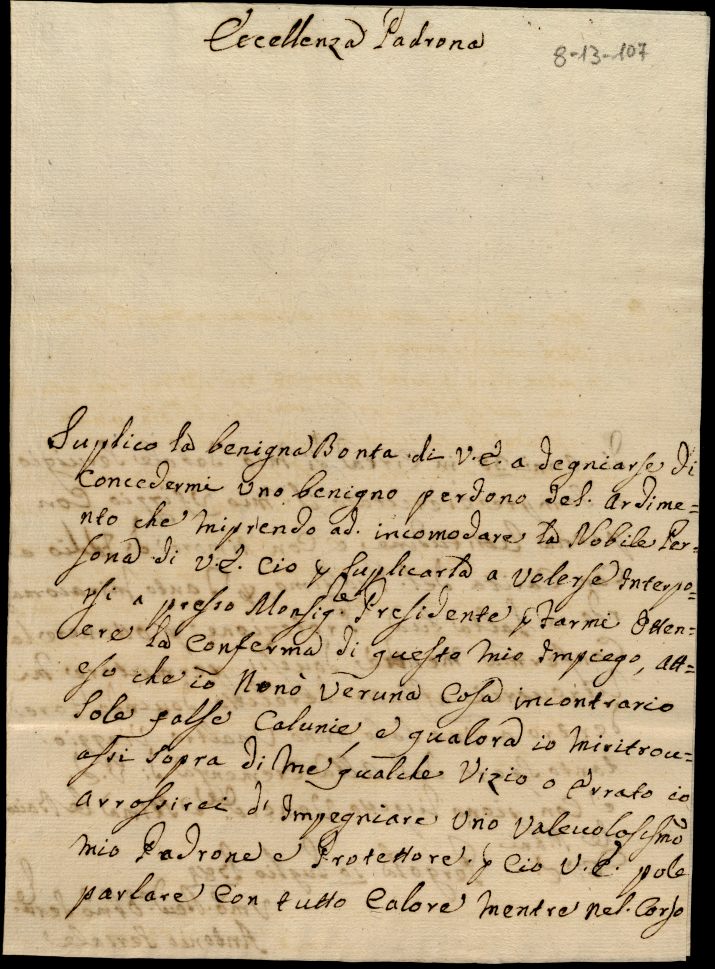 Eccellenza Padrona
8-13-107
Suplico la benigna Bonta di V.E. a degniarse di
Concedermi uno benigno perdono del. ardime=
nto che miprendo ad. incomodare la Nobile Per-
sona di V.E. Cio p Suplicarla a volerse Interpo-
rsi a presso Monsig.le Presidente p farmi Otten-
ere la Conferma di questo mio Impiego, att=
eso che io Nonò Veruna Cosa incontrario
Sole false Calunie, e qualora io miritrov-
assi Sopra di me qualche Vizio o Errato io
arrossirei di Impegniare Uno Valevolasimo
mio Padrone e Protettore. p Cio V.E. pole
parlare Con tutto Calore mentre nel. Corso